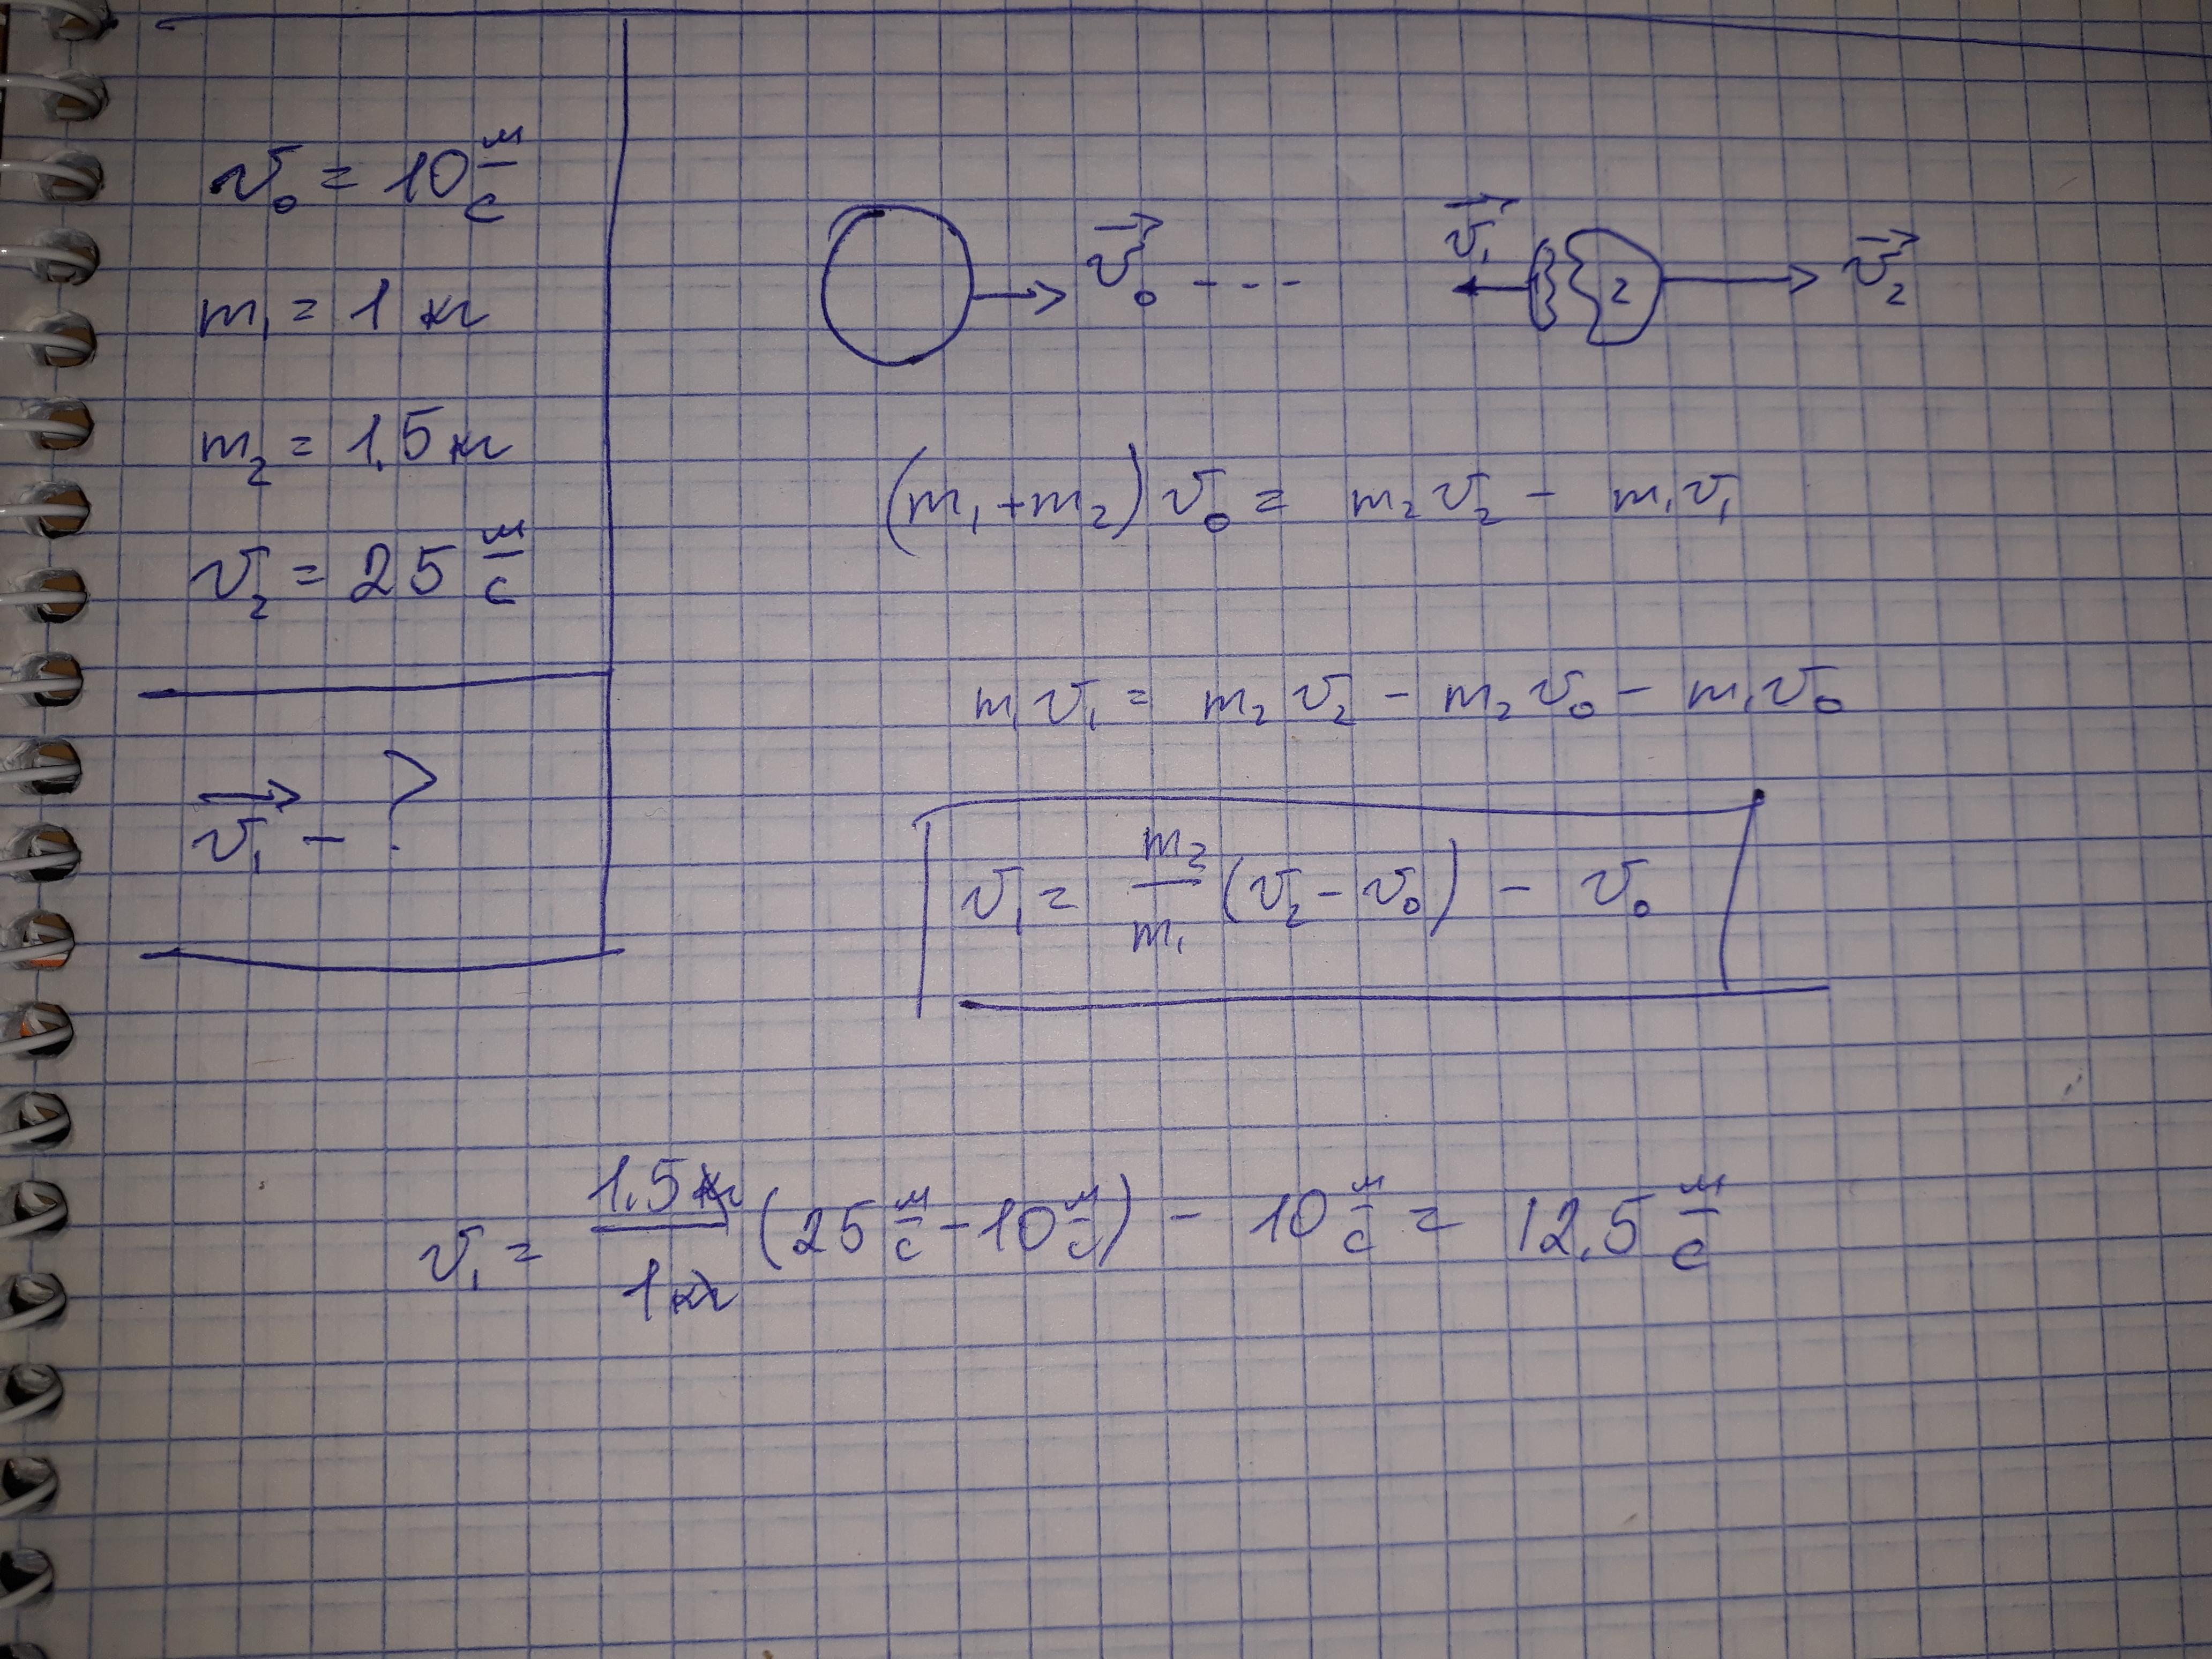 v₀ = 10 м/с
m₁ = 1 кг
m₂ = 1,5 кг
v₂ = 25 м/с
v⃗₁ - ?
v⃗₀ - - - v⃗₁ 2 v⃗₂
(m₁+m₂)v₀ = m₂v₂ - m₁v₁
m₁v₁ = m₂v₂ - m₂v₀ - m₁v₀
v₁ = m₂/m₁ (v₂ - v₀) - v₀
v₁ = 1.5 кг/1 кг (25 м/с - 10 м/с) - 10 м/с = 12.5 м/с